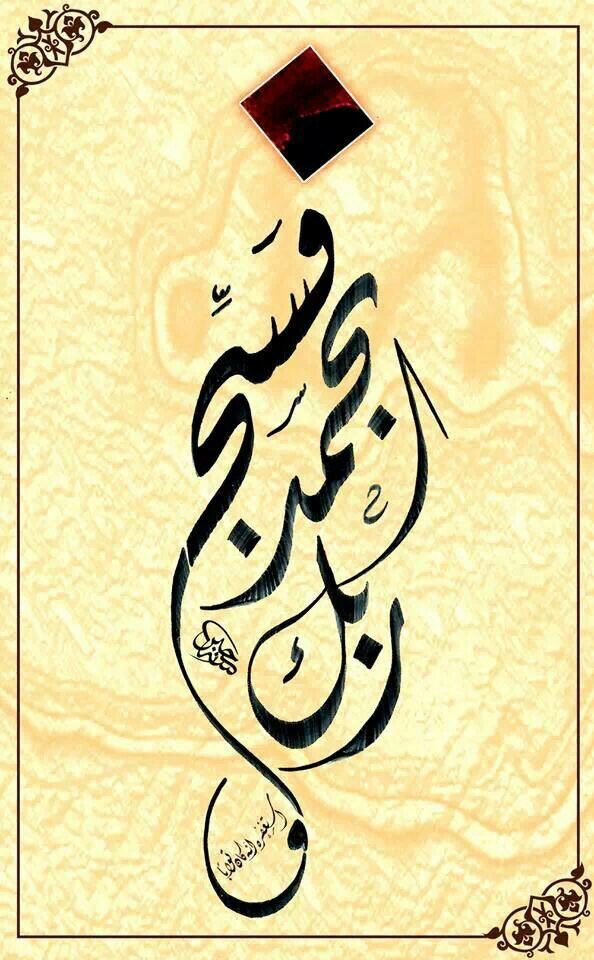 فسبِّح
بحمد
ربك
و
استغفره انه كان توابا